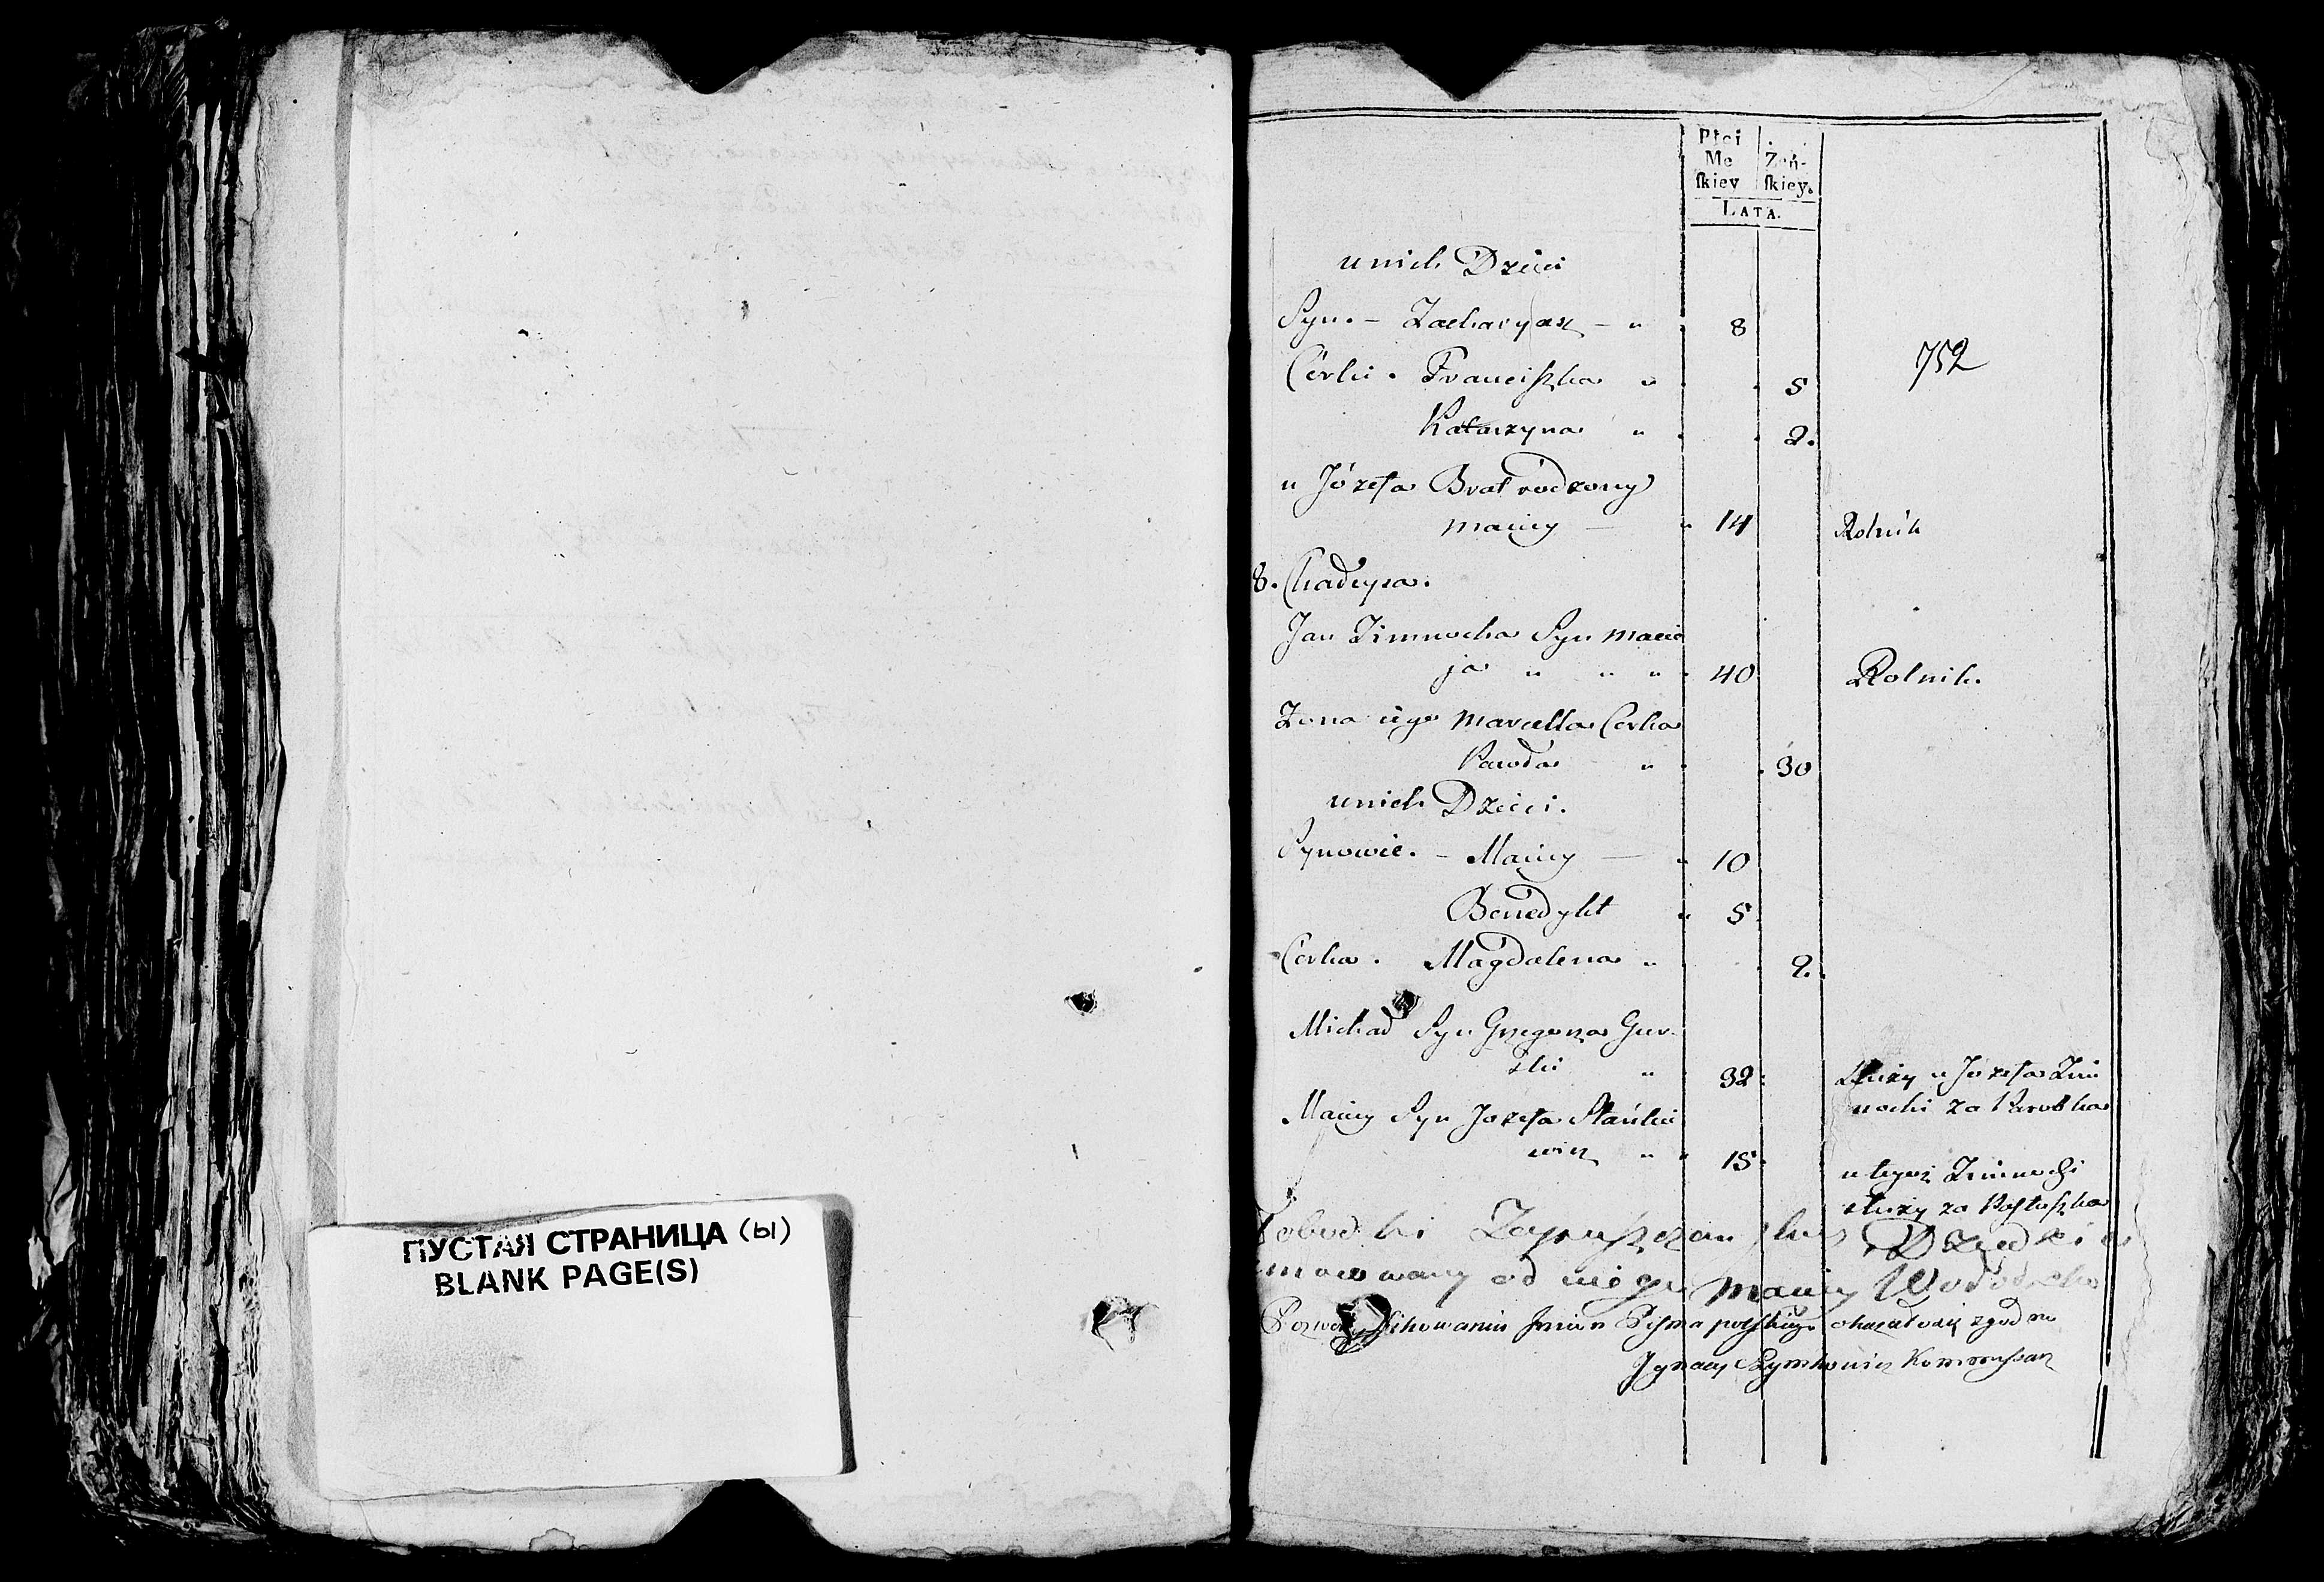 ПУСТАЯ СТРАНИЦА (Ы)
BLANK PAGE(S)
Płci
Mę
ſkiey
Żeń-
ſkiey.
LATA.
u nich Dzieci
Syn. - Zacharyasz - " 8
752
Córki. Franciſzka " 5
Katarzyna " 2.
u Józefa Brat rodzony
Maciey — " 14 Rolnik
8. Chałupa.
Jan Zimnocha Syn Macie
ja " " " 40 Rolnik.
Zona iego Marcella Corka
Pawła " 30
u nich Dzieci.
Synowie. - Maciey — " 10
Benedykt " 5
Corka. Magdalena " 2.
Michał Syn Grzegorza Gur-
ski " 32 służy u Józefa Zim
nochi za Parobka
Maciey Syn Jozefa Stańkie
wicz " 15 u tegoż Zimnochi
służy za Paſtuſzka
Zapuſzczan
od niego Maciey
polſkiego okazał się zgodno
Ignacy Szymkowicz Kommiſsarz